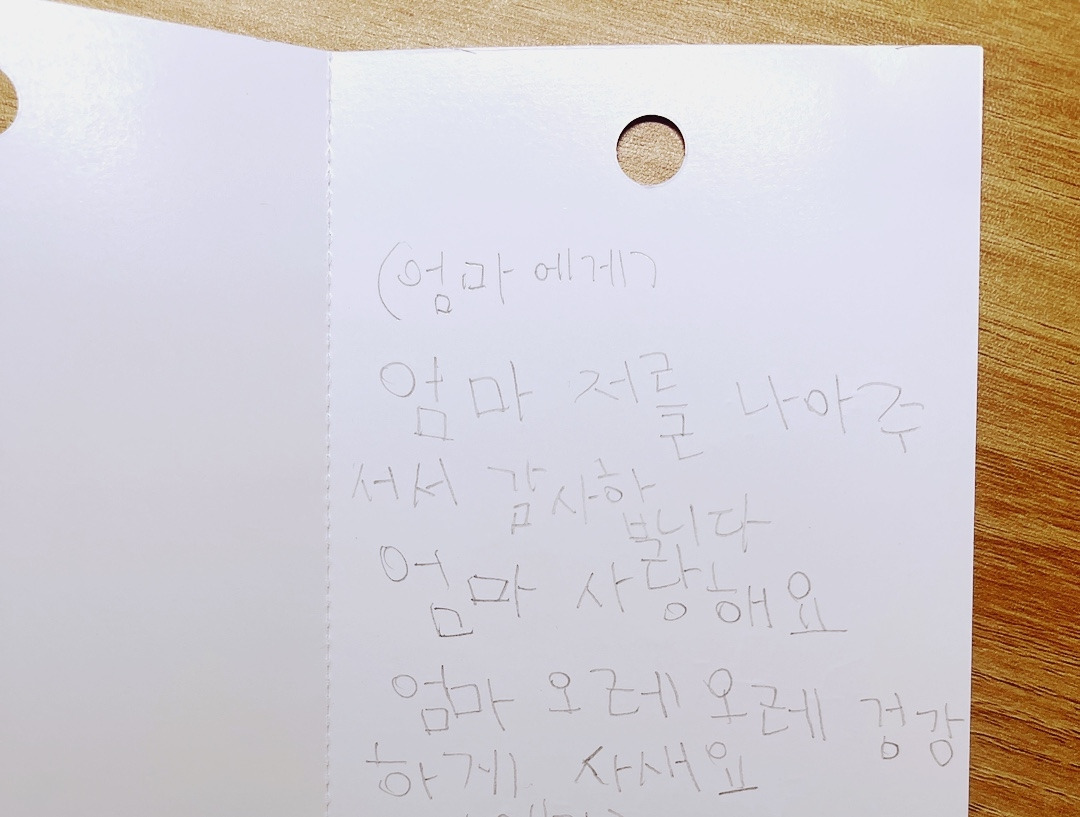 (엄마에게)
엄마 저를 나아주
서서 감사합니다
엄마 사랑해요
엄마 오레오레 겅강
하게 사새요